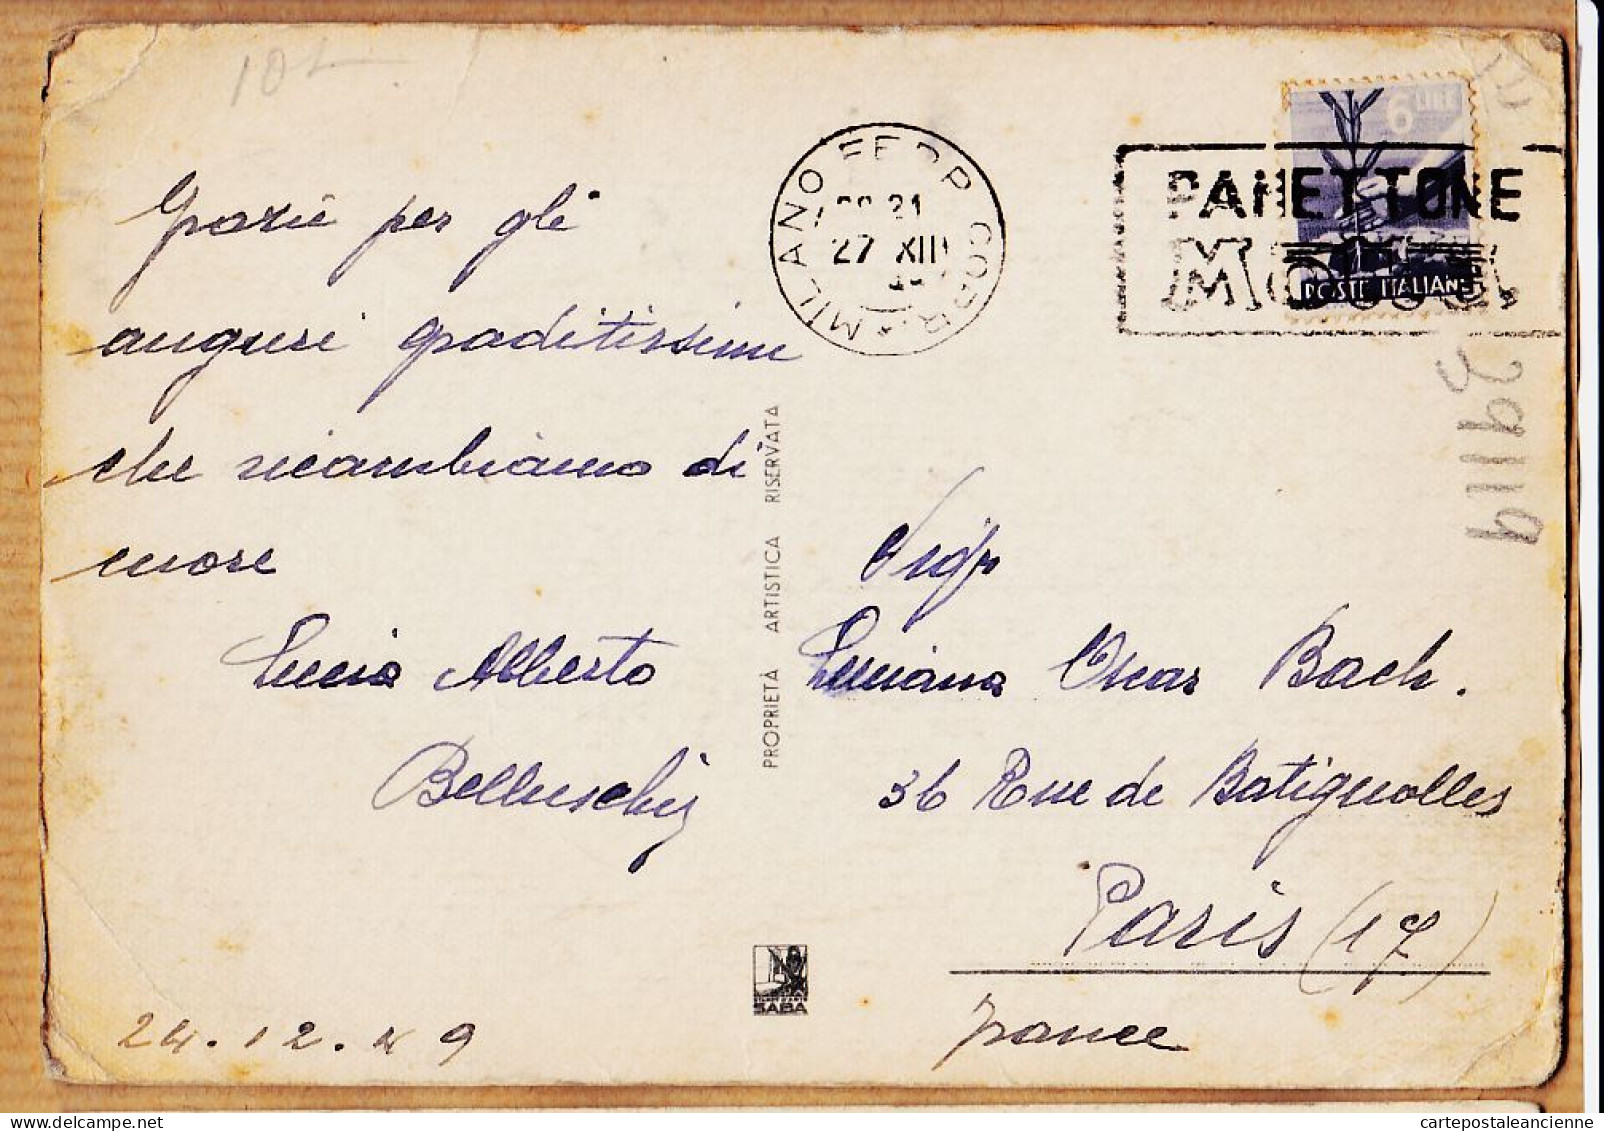 10 L
Grazie per gli
auguri graditissimi
che ricambiamo di
cuore
Lucia Alberto
Belluschi
24.12.49
PROPRIETÀ ARTISTICA RISERVATA
SABA
MILANO FERR. CORR.
21
27 XII
PANETTONE
MOTTA
6 LIRE
POSTE ITALIANE
39119
Sigr
Luciana Oscar Bach.
36 Rue de Batignolles
Paris (17)
France
cartepostaleancienne.com